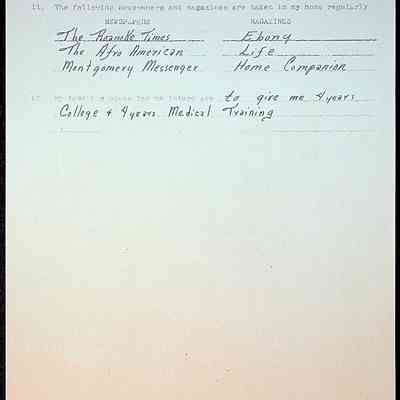 11. The following newspapers and magazines are taken in my home regularly
NEWSPAPERS MAGAZINES
The Roanoke Times Ebony
The Afro American Life
Montgomery Messenger Home Companion
12. My family's plans for my future are to give me 4 years
College + 4 years Medical Training